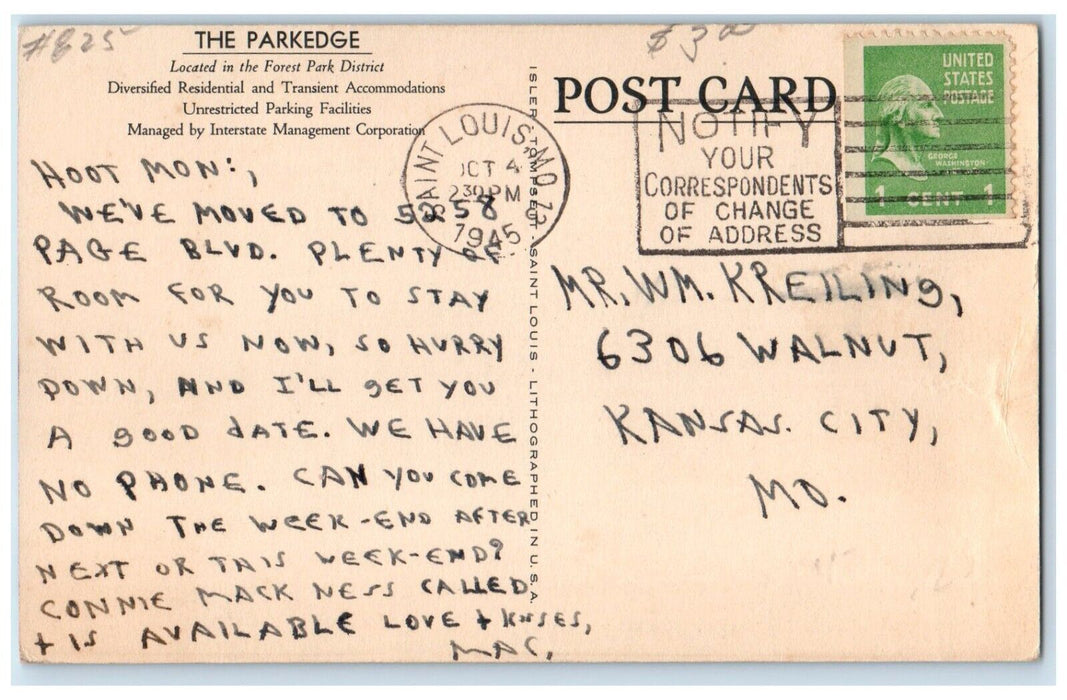 #825
THE PARKEDGE
Located in the Forest Park District
Diversified Residential and Transient Accommodations
Unrestricted Parking Facilities
Managed by Interstate Management Corporation
HOOT MON:,
WE'VE MOVED TO 5258
PAGE BLVD. PLENTY OF
ROOM FOR YOU TO STAY
WITH US NOW, SO HURRY
DOWN, AND I'LL GET YOU
A GOOD DATE. WE HAVE
NO PHONE. CAN YOU COME
DOWN THE WEEK-END AFTER
NEXT OR THIS WEEK-END?
CONNIE MACK NESS CALLED
+ IS AVAILABLE LOVE + KISSES,
MAC,
SAINT LOUIS, MO.
OCT 4
230 PM
1945
ISLER-TOMPSETT SAINT LOUIS - LITHOGRAPHED IN U.S.A.
POST CARD
NOTIFY
YOUR
CORRESPONDENTS
OF CHANGE
OF ADDRESS
UNITED
STATES
POSTAGE
GEORGE
WASHINGTON
1 CENT 1
MR. WM. KREILING,
6306 WALNUT,
KANSAS. CITY,
MO.